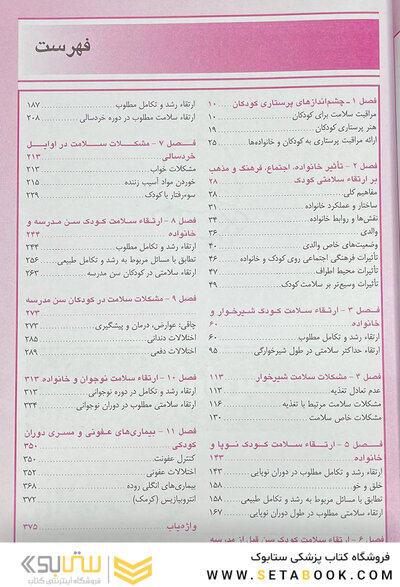 فهرست
فصل ۱ ـ چشم‌اندازهای پرستاری کودکان ۱۰
مراقبت سلامت برای کودکان ۱۰
هنر پرستاری کودکان ۱۹
ارائه مراقبت پرستاری به کودکان و خانواده‌ها ۲۵
فصل ۲ - تأثیر خانواده، اجتماع، فرهنگ و مذهب
بر ارتقاء سلامتی کودک ۲۸
مفاهیم کلی ۲۸
ساختار و عملکرد خانواده ۳۱
نقش‌ها و روابط خانواده ۳۴
والدی ۳۶
وضعیت‌های خاص والدی ۴۰
تأثیرات فرهنگی اجتماعی روی کودک و خانواده ۴۶
تأثیرات محیط اطراف ۴۷
تأثیرات وسیع‌تر بر سلامت کودک ۴۹
فصل ۳ - ارتقاء سلامت کودک شیرخوار و
خانواده ۶۰
ارتقاء رشد و تکامل مطلوب ۶۰
ارتقاء حداکثر سلامتی در طول شیرخوارگی ۹۵
فصل ۴ - مشکلات سلامت شیرخوار ۱۱۳
عدم تعادل تغذیه ۱۱۳
مشکلات سلامت مرتبط با تغذیه ۱۱۶
مشکلات خاص سلامت ۱۳۰
فصل ۵ - ارتقاء سلامت کودک نوپا و
خانواده ۱۴۳
ارتقاء رشد و تکامل مطلوب در دوران نوپایی ۱۴۳
خلق و خو ۱۵۸
تطابق با مسائل مربوط به رشد و تکامل طبیعی ۱۵۸
ارتقاء سلامتی مطلوب در طول دوران نوپایی ۱۶۷
فصل ۶ - ارتقاء سلامت کودک سن قبل از مدرسه
ارتقاء رشد و تکامل مطلوب ۱۸۷
ارتقاء سلامت مطلوب در دوره خردسالی ۲۰۸
فصل ۷ - مشکلات سلامت در اوایل
خردسالی ۲۱۳
مشکلات خواب ۲۱۳
خوردن مواد آسیب زننده ۲۱۵
سوءرفتار با کودک ۲۲۹
فصل ۸ - ارتقاء سلامت کودک سن مدرسه و
خانواده ۲۴۴
ارتقاء رشد و تکامل مطلوب ۲۴۴
تطابق با مسائل مربوط به رشد و تکامل طبیعی ۲۵۶
ارتقاء سلامتی در کودکان سن مدرسه ۲۶۳
فصل ۹ - مشکلات سلامت در کودکان سن مدرسه
۲۷۳
چاقی: عوارض، درمان و پیشگیری ۲۷۳
اختلالات دندانی ۲۸۵
اختلالات دفعی ۲۸۹
فصل ۱۰ - ارتقاء سلامت نوجوان و خانواده ۳۱۳
ارتقاء رشد و تکامل در دوره نوجوانی ۳۱۳
ارتقاء سلامتی مطلوب در دوران نوجوانی ۳۳۴
فصل ۱۱ - بیماری‌های عفونی و مسری دوران
کودکی ۳۵۰
کنترل عفونت ۳۵۰
اختلالات عفونی ۳۵۲
بیماری‌های انگلی روده ۳۶۸
انتروبیازیس (کرمک) ۳۷۲
واژه‌یاب ۳۷۵
فروشگاه کتاب پزشکی ستابوک
WWW.SETABOOK.COM
ستابوک
فروشگاه اینترنتی کتاب